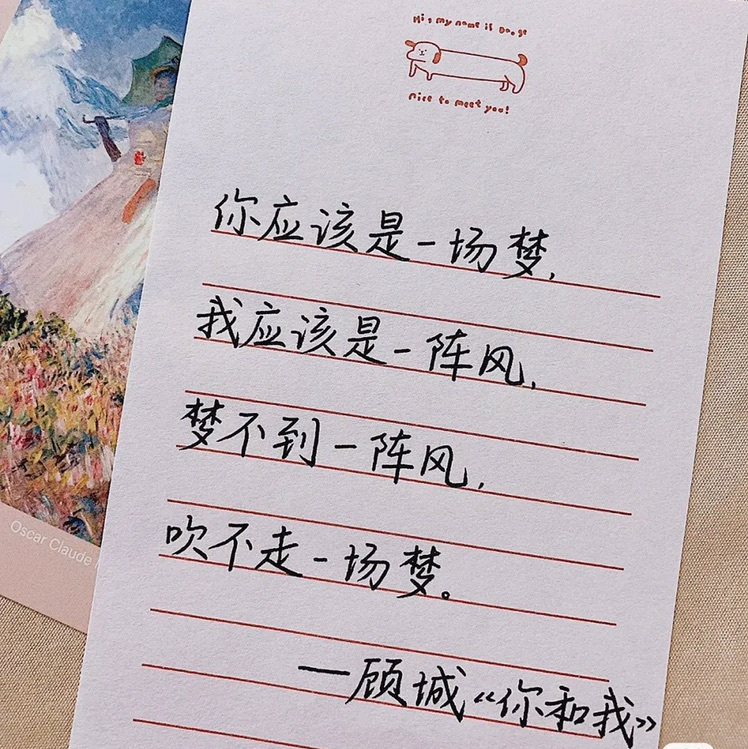 Hi, my name is Doogs
Nice to meet you!
你应该是一场梦,
我应该是一阵风,
梦不到一阵风,
吹不走一场梦。
——顾城《你和我》
Oscar Claude